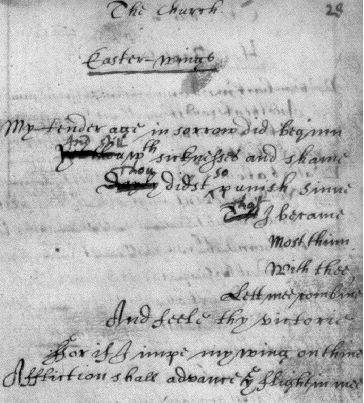 The Church. 28
Easter-wings
My tender age in sorrow did beginn
And still
yet thou wth sicknesses and shame
Thou so
Dayly didst punish sinne
That
Till I became
Most thinn
With thee
Lett mee combine
And feele thy victorie
For if I impe my wing on thine
Affliction shall advance ye flight in mee